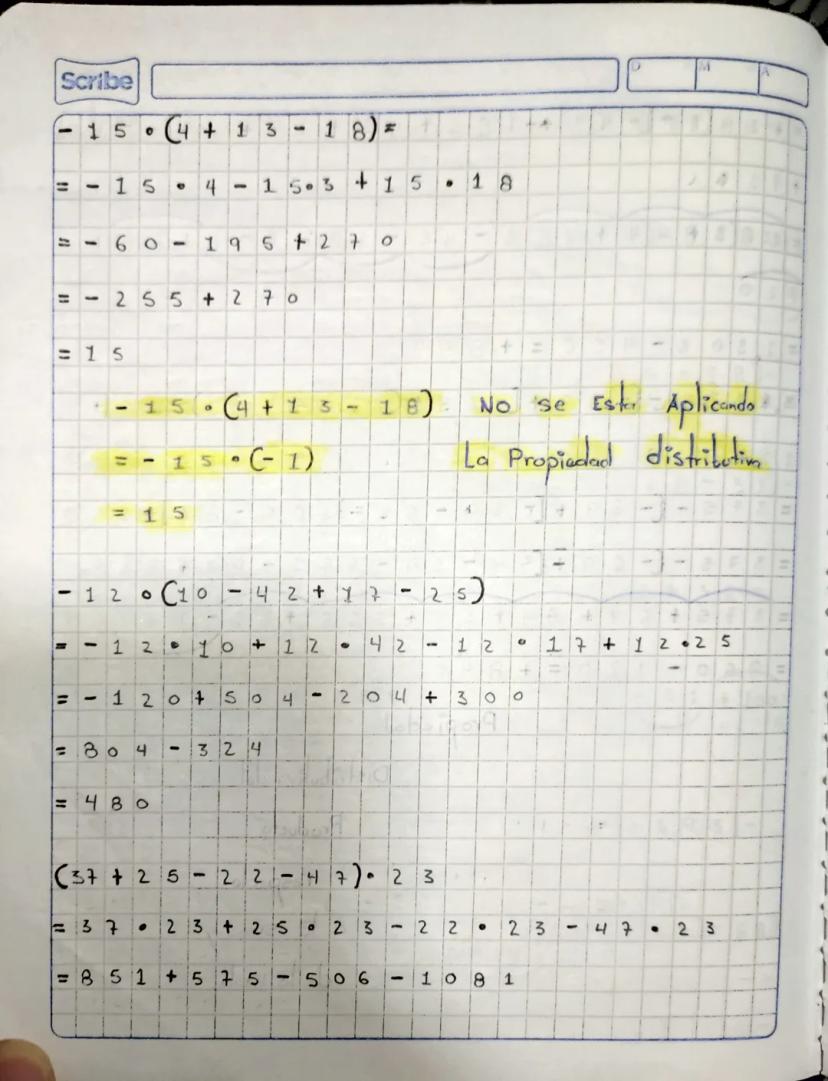 Scribe
D M A
- 15 • (4 + 13 - 18) =
= - 15 • 4 - 15•3 + 15 • 18
= - 60 - 195 + 270
= - 255 + 270
= 15
- 15 • (4 + 13 - 18) No se Esta Aplicando
= - 15 • (- 1) La Propiedad distributiva
= 15
- 12 • (10 - 42 + 17 - 25)
= - 12 • 10 + 12 • 42 - 12 • 17 + 12 • 25
= - 120 + 504 - 204 + 300
= 804 - 324
= 480
(37 + 25 - 22 - 47) • 23
= 37 • 23 + 25 • 23 - 22 • 23 - 47 • 23
= 851 + 575 - 506 - 1081